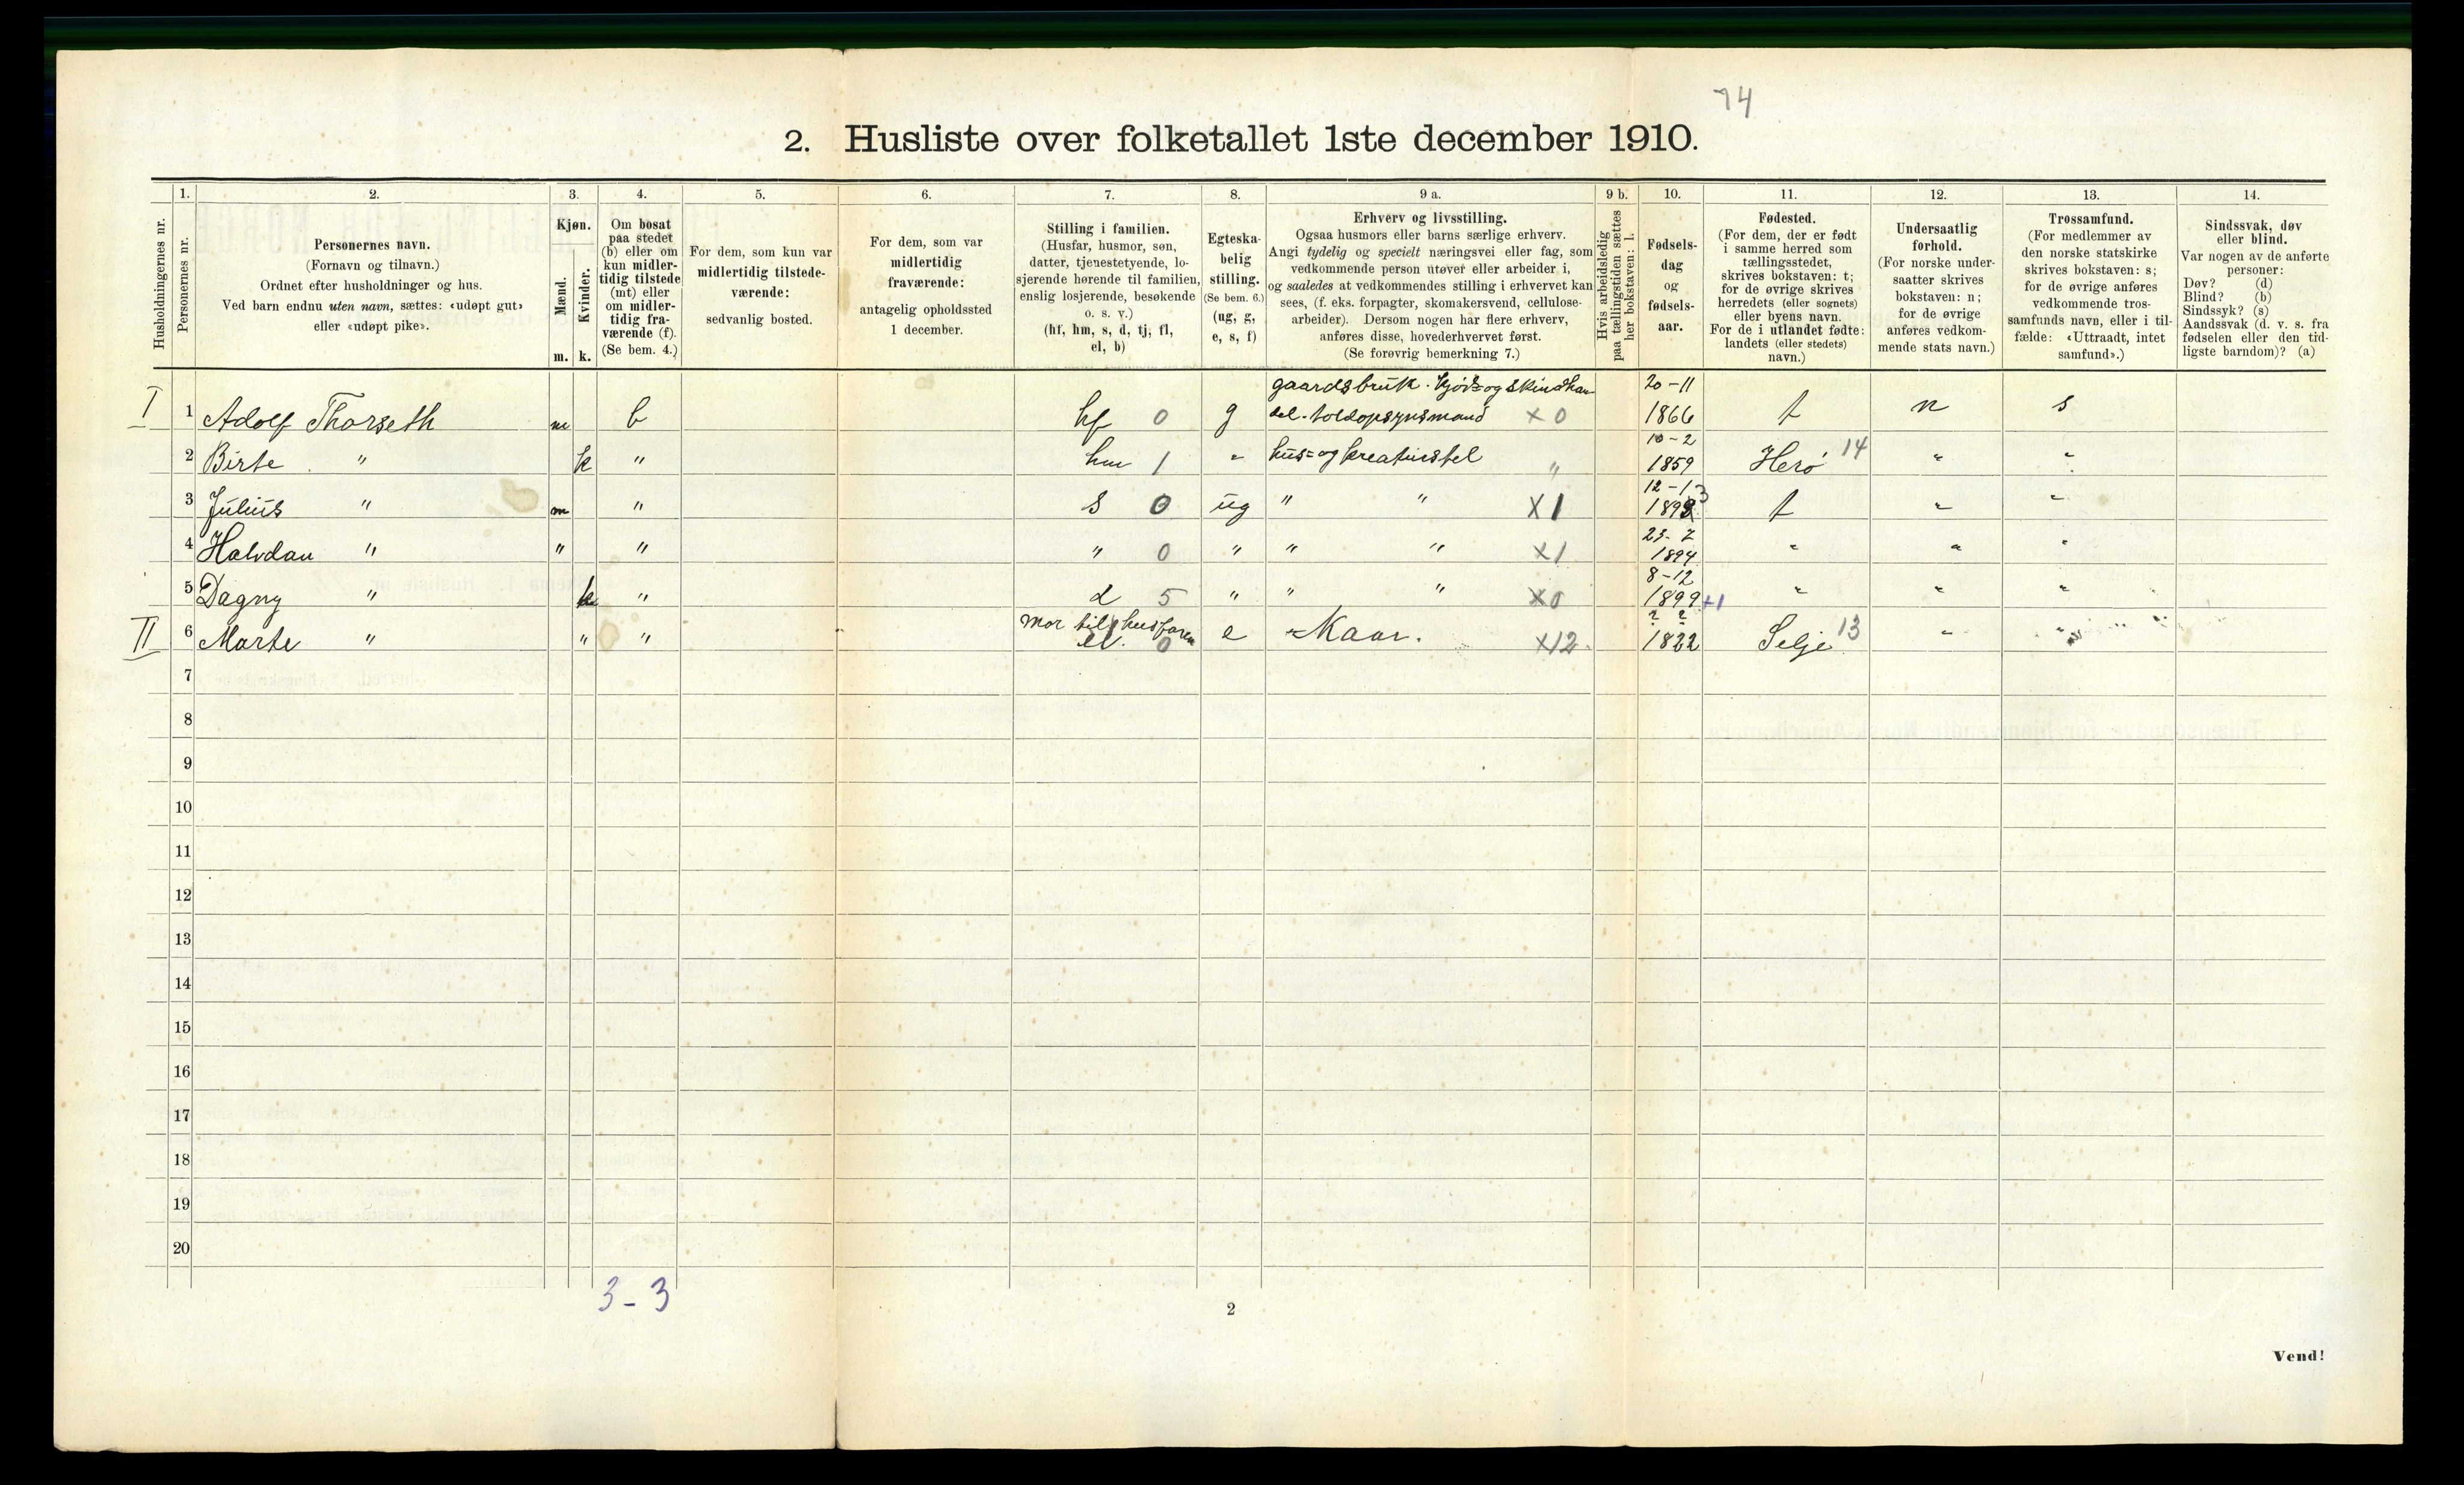 74
2. Husliste over folketallet 1ste december 1910.
1. 2. 3. 4. 5. 6. 7. 8. 9 a. 9 b. 10. 11. 12. 13. 14.
Husholdningernes nr.
Personernes nr.
Personernes navn.
(Fornavn og tilnavn.)
Ordnet efter husholdninger og hus.
Ved barn endnu uten navn, sættes: «udøpt gut»
eller «udøpt pike».
Kjøn.
Mænd.
Kvinder.
m. k.
Om bosat
paa stedet
(b) eller om
kun midler-
tidig tilstede
(mt) eller
om midler-
tidig fra-
værende (f).
(Se bem. 4.)
For dem, som kun var
midlertidig tilstede-
værende:
sedvanlig bosted.
For dem, som var
midlertidig
fraværende:
antagelig opholdssted
1 december.
Stilling i familien.
(Husfar, husmor, søn,
datter, tjenestetyende, lo-
sjerende hørende til familien,
enslig losjerende, besøkende
o. s. v.)
(hf, hm, s, d, tj, fl,
el, b)
Egteska-
belig
stilling.
(Se bem. 6.)
(ug, g,
e, s, f)
Erhverv og livsstilling.
Ogsaa husmors eller barns særlige erhverv.
Angi tydelig og specielt næringsvei eller fag, som
vedkommende person utøver eller arbeider i,
og saaledes at vedkommendes stilling i erhvervet kan
sees, (f. eks. forpagter, skomakersvend, cellulose-
arbeider). Dersom nogen har flere erhverv,
anføres disse, hovederhvervet først.
(Se forøvrig bemerkning 7.)
Hvis arbeidsledig
paa tællingstiden sættes
her bokstaven: l.
Fødsels-
dag
og
fødsels-
aar.
Fødested.
(For dem, der er født
i samme herred som
tællingsstedet,
skrives bokstaven: t;
for de øvrige skrives
herredets (eller sognets)
eller byens navn.
For de i utlandet fødte:
landets (eller stedets)
navn.)
Undersaatlig
forhold.
(For norske under-
saatter skrives
bokstaven: n;
for de øvrige
anføres vedkom-
mende stats navn.)
Trossamfund.
(For medlemmer av
den norske statskirke
skrives bokstaven: s;
for de øvrige anføres
vedkommende tros-
samfunds navn, eller i til-
fælde: «Uttraadt, intet
samfund».)
Sindssvak, døv
eller blind.
Var nogen av de anførte
personer:
Døv? (d)
Blind? (b)
Sindssyk? (s)
Aandssvak (d. v. s. fra
fødselen eller den tid-
ligste barndom)? (a)
gaardsbruk. kjød- og skindhan 20-11
I 1 Adolf Thorseth m b hf 0 g del. toldopsynsmand x 0 1866 t n s
10-2
2 Birte " k " hm 1 " hus= og kreaturstel " 1859 Herø 14 " "
12-1
3 Julius " m " s 0 ug " " X1 1893 t " "
23-7
4 Halvdan " " " " 0 " " " X1 1894 " " "
8-12
5 Dagny " k " d 5 " " " X0 1899 +1 " " "
mor til husfaren ? ?
II 6 Marte " " " el. 0 e Kaar. X12 1822 Selje 13 " "
7
8
9
10
11
12
13
14
15
16
17
18
19
20
3-3
2
Vend!